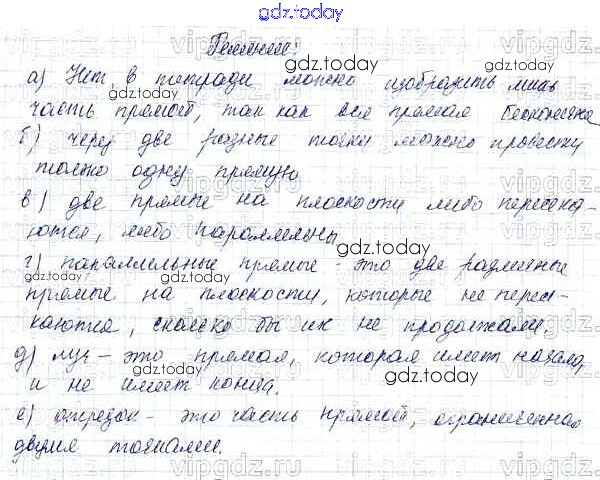 gdz.today
Решение:
а) Нет, в тетради можно изобразить лишь
часть прямой, так как вся прямая бесконечна
б) через две разные точки можно провести
только одну прямую
в) две прямые на плоскости либо пересека-
ются, либо параллельны
г) параллельные прямые - это две различные
прямые на плоскости, которые не перес-
каются, сколько бы их не продолжали.
д) луч - это прямая, которая имеет начало,
и не имеет конца.
е) отрезок - это часть прямой, ограниченная
двумя точками.